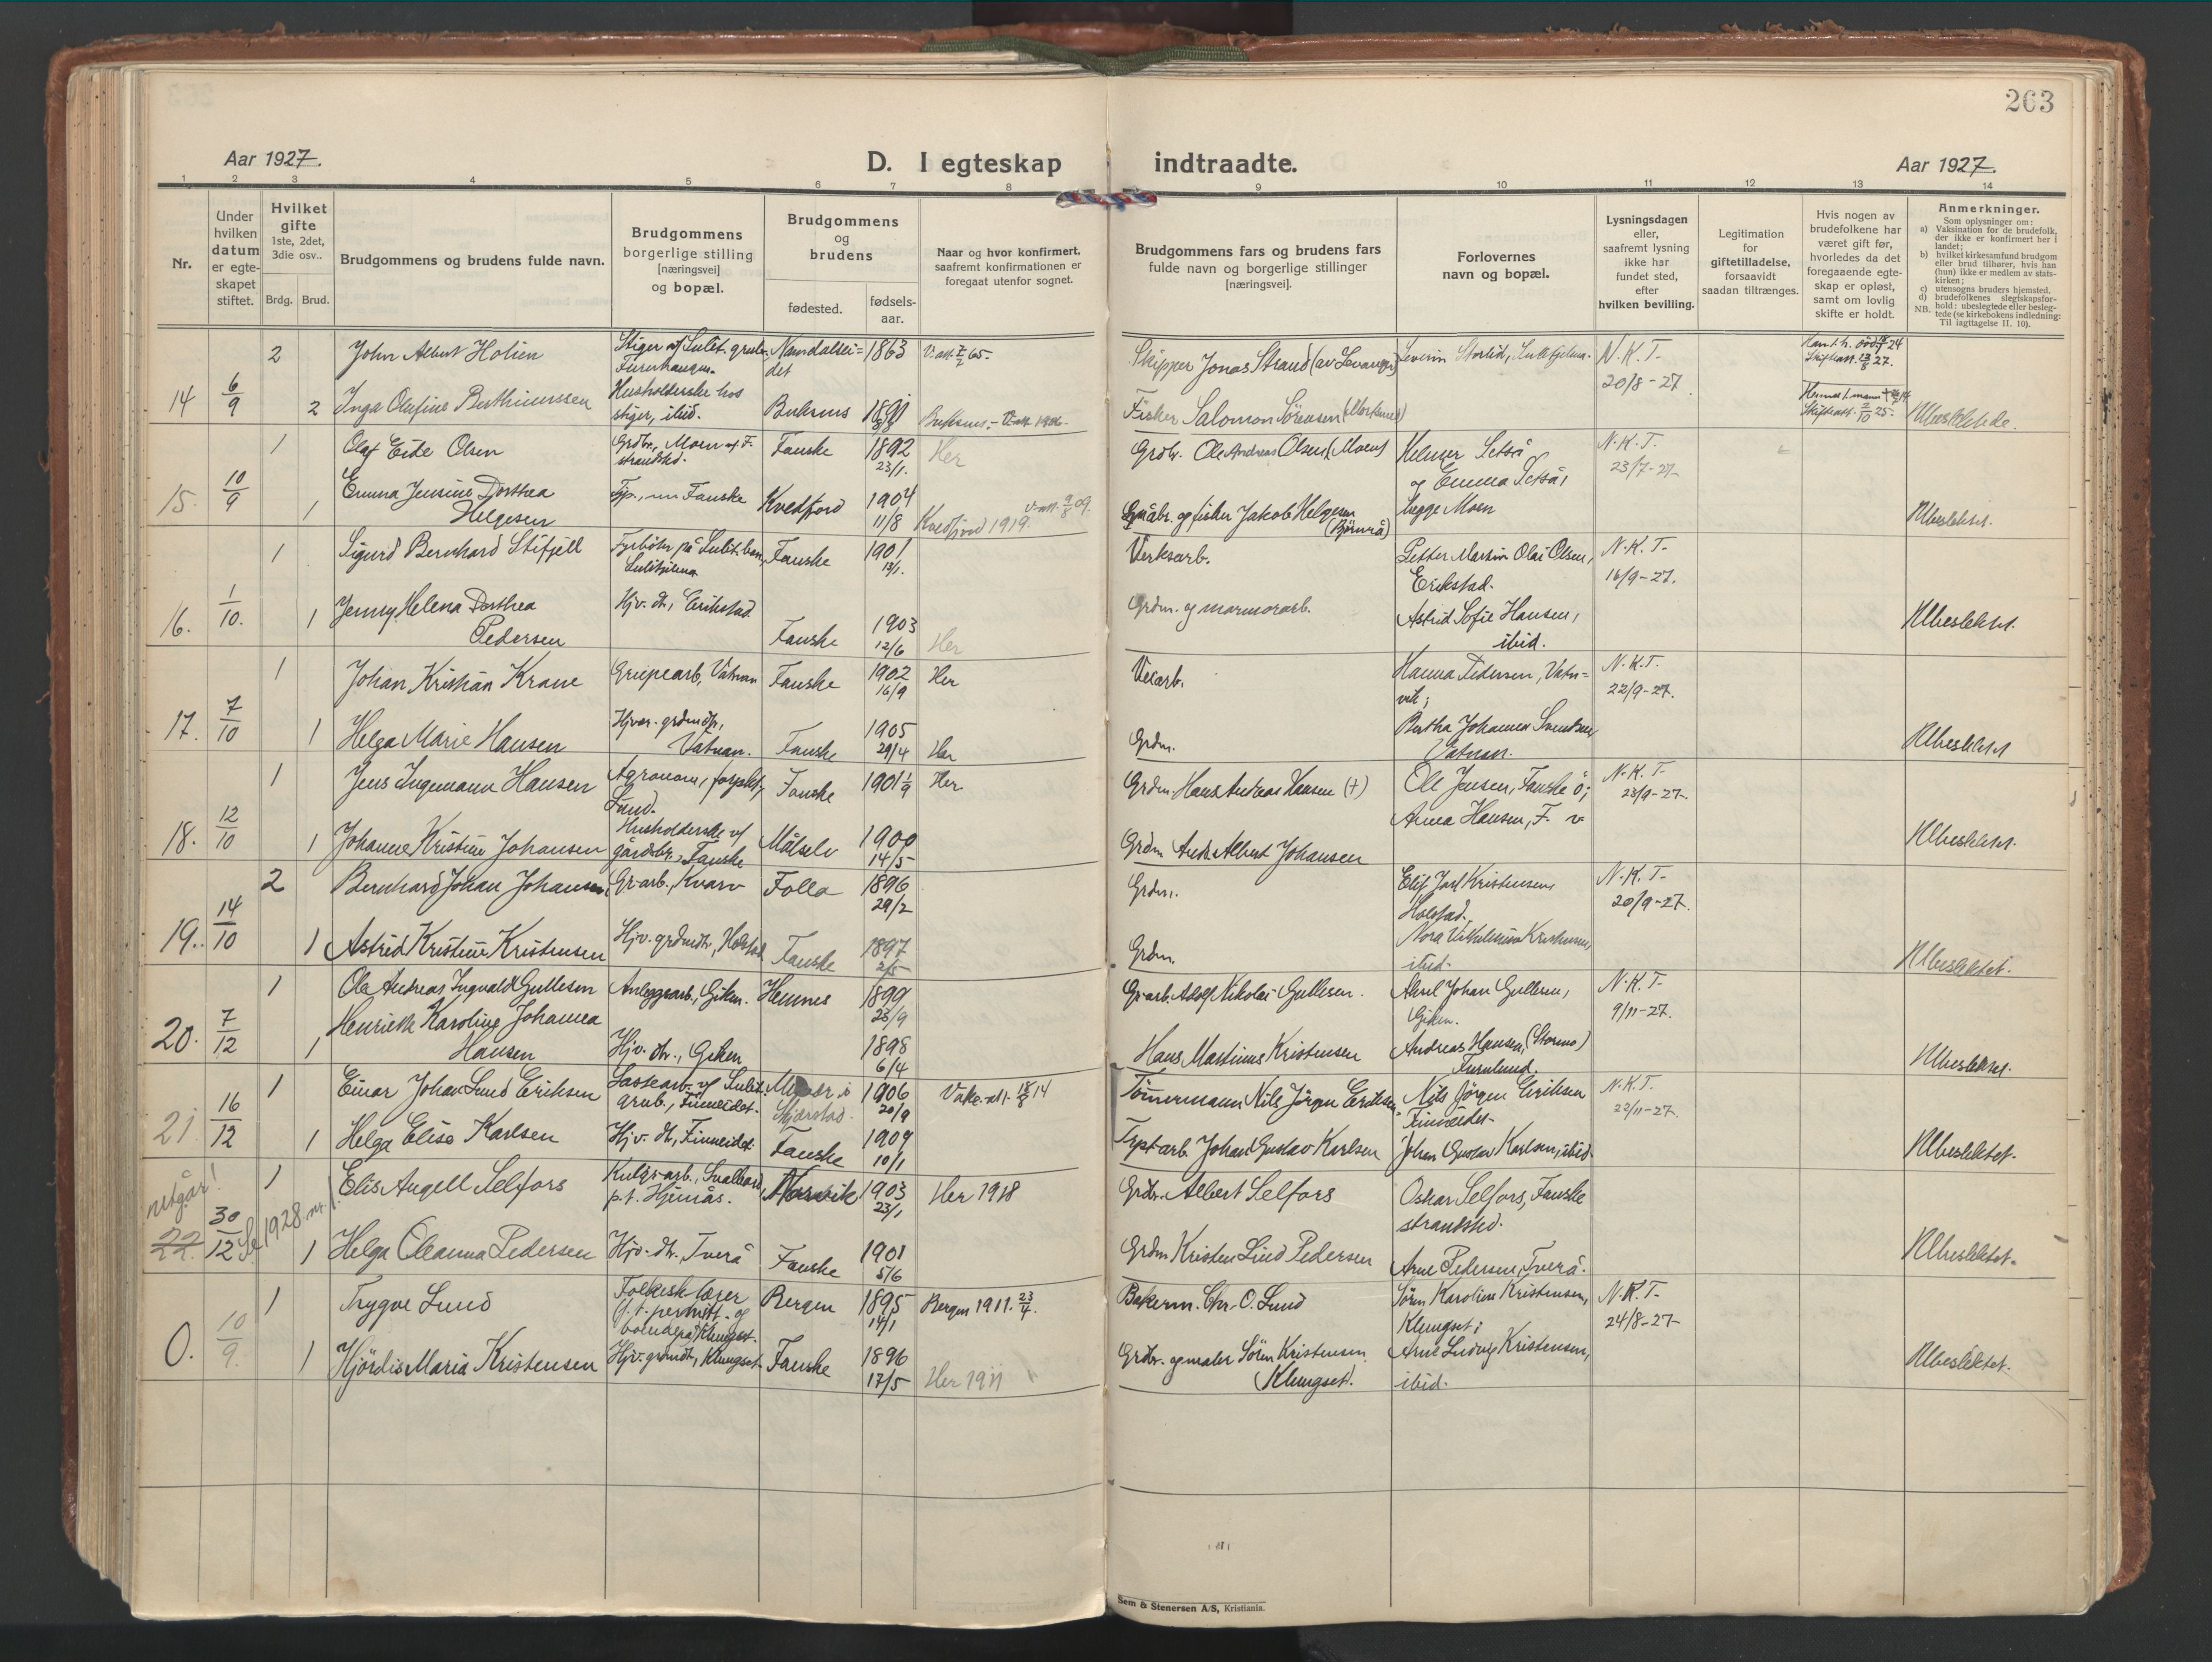 263
Aar 1927.
D. I egteskap
indtraadte.
Aar 1927.
1 2 3 4 5 6 7 8 9 10 11 12 13 14
Nr.
Under
hvilken
datum
er egte-
skapet
stiftet.
Hvilket
gifte
1ste, 2det,
3die osv..
Brdg. Brud.
Brudgommens og brudens fulde navn.
Brudgommens
borgerlige stilling
[næringsvei]
og bopæl.
Brudgommens
og
brudens
fødested.
fødsels-
aar.
Naar og hvor konfirmert,
saafremt konfirmationen er
foregaat utenfor sognet.
Brudgommens fars og brudens fars
fulde navn og borgerlige stillinger
[næringsvei].
Forlovernes
navn og bopæl.
Lysningsdagen
eller,
saafremt lysning
ikke har
fundet sted,
efter
hvilken bevilling.
Legitimation
for
giftetilladelse,
forsaavidt
saadan tiltrænges.
Hvis nogen av
brudefolkene har
været gift før,
hvorledes da det
foregaaende egte-
skap er opløst,
samt om lovlig
skifte er holdt.
Anmerkninger.
Som oplysninger om:
a) Vaksination for de brudefolk,
der ikke er konfirmert her i
landet;
b) hvilket kirkesamfund brudgom
eller brud tilhører, hvis han
(hun) ikke er medlem av stats-
kirken;
c) utensogns bruders hjemsted,
d) brudefolkenes slegtskapsfor-
hold: ubeslegtede eller besleg-
NB. tede (se kirkebokens indledning:
Til iagttagelse II. 10).
14 6/9
2 John Albert Holien
Stiger v/ Sulit. grube,
Furuhaugen.
Namdalsei=
det
1863 V. att. 7/2 65-
Skipper Jonas Strand (av Levanger)
Severin Storlid, Sulitjelma.
N. K. T.
20/8-27
Skifteatt. 13/8 27.
2 Inga Olufine Berthinussen
Husholderske hos
stiger, ibid.
Buksnes 1891
Fisker Salomon Sörensen
Skifteatt. 2/10 25-
Ubeslektede.
15. 10/9
1 Olaf Eide Olsen
Grdbr., Moen v/ F.
strandsted.
Fauske 1892
23/1.
Her
Grdbr. Ole Andreas Olsen (Moen)
Helmer Setså
og Emma Setså,
begge Moen
N. K. T.
23/7-27-
1 Emma Jensine Dorthea
Helgesen
Tjp., nu Fauske
Kvedfjord 1904
11/8
Kvedfjord 1919.
v. att. 9/8 09.
Gårdbr. og fisker Jakob Helgesen
(Björnrå)
Ubeslektet.
16. 1/10.
1 Sigurd Bernhard Stifjell
Fyrböter på Sulit. ban,
Sulitjelma
Fauske 1901
13/1.
Verksarb.
Petter Martin Olai Olsen,
Erikstad.
N. K. T.
16/9-27.
1 Jenny Helena Dorthea
Pedersen
Hjv. dtr, Erikstad
Fauske 1903
12/6
Her
Grdm. og marmorarb.
Astrid Sofie Hansen,
ibid.
Ubeslektet.
17. 7/10
1 Johan Kristian Krane
Grupearb, Vatnan
Fauske 1902
16/9
Her
Veiarb.
Hanna Pedersen, Vatn=
vik;
N. K. T.
22/9-27.
1 Helga Marie Hansen
Hjver. grdmdtr,
Vatnan.
Fauske 1905
29/4
Her
Grdm.
Bertha Johanna Svendsen
Vatnan.
Ubeslektet
18. 12/10
1 Jens Ingemann Hansen
Agronom, forpakt.,
Lund.
Fauske 1901 1/9
Her
Grdm. Hans Andreas Hansen (+)
Ole Jensen, Fauske ö;
Anna Hansen, F. v
N. K. T.
23/9-27.
1 Johanne Kristine Johansen
Husholderske v/
gårdsbr., Fauske
Målselv 1900
14/5
Grdm Andr. Albert Johansen
Ubeslektet.
19. 14/10
2 Bernhard Johan Johansen
Gr. arb., Kvarv
Folla 1896
29/2
Grdm.
Elif Jarl Kristensen,
Holstad.
N. K. T.
20/9-27.
1 Astrid Kristine Kristensen
Hjv. grdmdtr, Holstad
Fauske 1897
2/5
Grdm.
Nora Vilhelmina Kristensen,
ibid.
Ubeslektet.
20. 7/12
1 Ole Andreas Ingvald Gullesen
Anleggsarb., Giken.
Hemnes 1899
23/9
Gr. arb. Adolf Nikolai Gullesen.
Aksel Johan Gullesen,
Giken.
N. K. T.
9/11-27.
1 Henrikke Karoline Johanna
Hansen
Hjv. dtr., Giken
1898
6/4
Hans Martinus Kristensen
Andreas Hansen, (Stormo)
Furulund.
Ubeslektet.
21. 16/12
1 Einar Johan Lund Eriksen
Lastearb. v/ Sulit.
grub., Finneidet.
Skjerstad.
1906
20/9
Vake. att. 18/8 14
Tömmermann Nils Jörgen Eriksen,
Nils Jörgen Eriksen
Finneidet-
N. K. T.
22/11-27.
1 Helga Elise Karlsen
Hjv. dtr, Finneidet
Fauske 1909
10/1
Johan Gustav Karlsen
Johan Gustav Karlsen, ibid.
Ubeslektet.
utgår!
Se 1928 nr 1.
22. 30/12
1 Elis Angell Selfors
Kulgr. arb., Svalbard,
p. t. Hjemås.
Narvik 1903
23/1
Her 1918
Grdbr. Albert Selfors
Oskar Selfors, Fauske
strandsted.
1 Helga Oleanna Pedersen
Hjv. dtr, Tverå
Fauske 1901
5/6
Grdm Kristen Lind Pedersen
Arne Pedersen, Tverå.
Ubeslektet.
0. 10/9.
1 Trygve Lund
Bergen 1895
14/1
Bergen 1911. 23/4.
Bakerm. Chr. O. Lund
Sören Karoline Kristensen,
Klungset;
N. K. T.
24/8-27-
1 Hjördis Maria Kristensen
Hjv. grdmdtr, Klungset
Fauske 1896
17/5
Her 1911
Grdbr. og maler Sören Kristensen
(Klungset).
Arne Ludvig Kristensen,
ibid.
Ubeslektet.
Sem & Stenersen A/S, Kristiania.